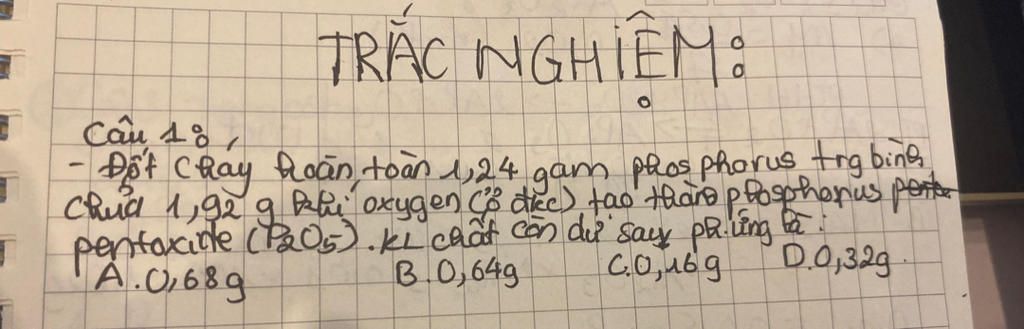 TRẮC NGHIỆM:
Câu 1:
- Đốt cháy hoàn toàn 1,24 gam phosphorus trg bình
chứa 1,92 g khí oxygen (ở đkc) tạo thành phosphorus
pentoxide (P2O5). KL chất còn dư sau p/ứng là:
A. 0,68g B. 0,64g C. 0,16g D. 0,32g.